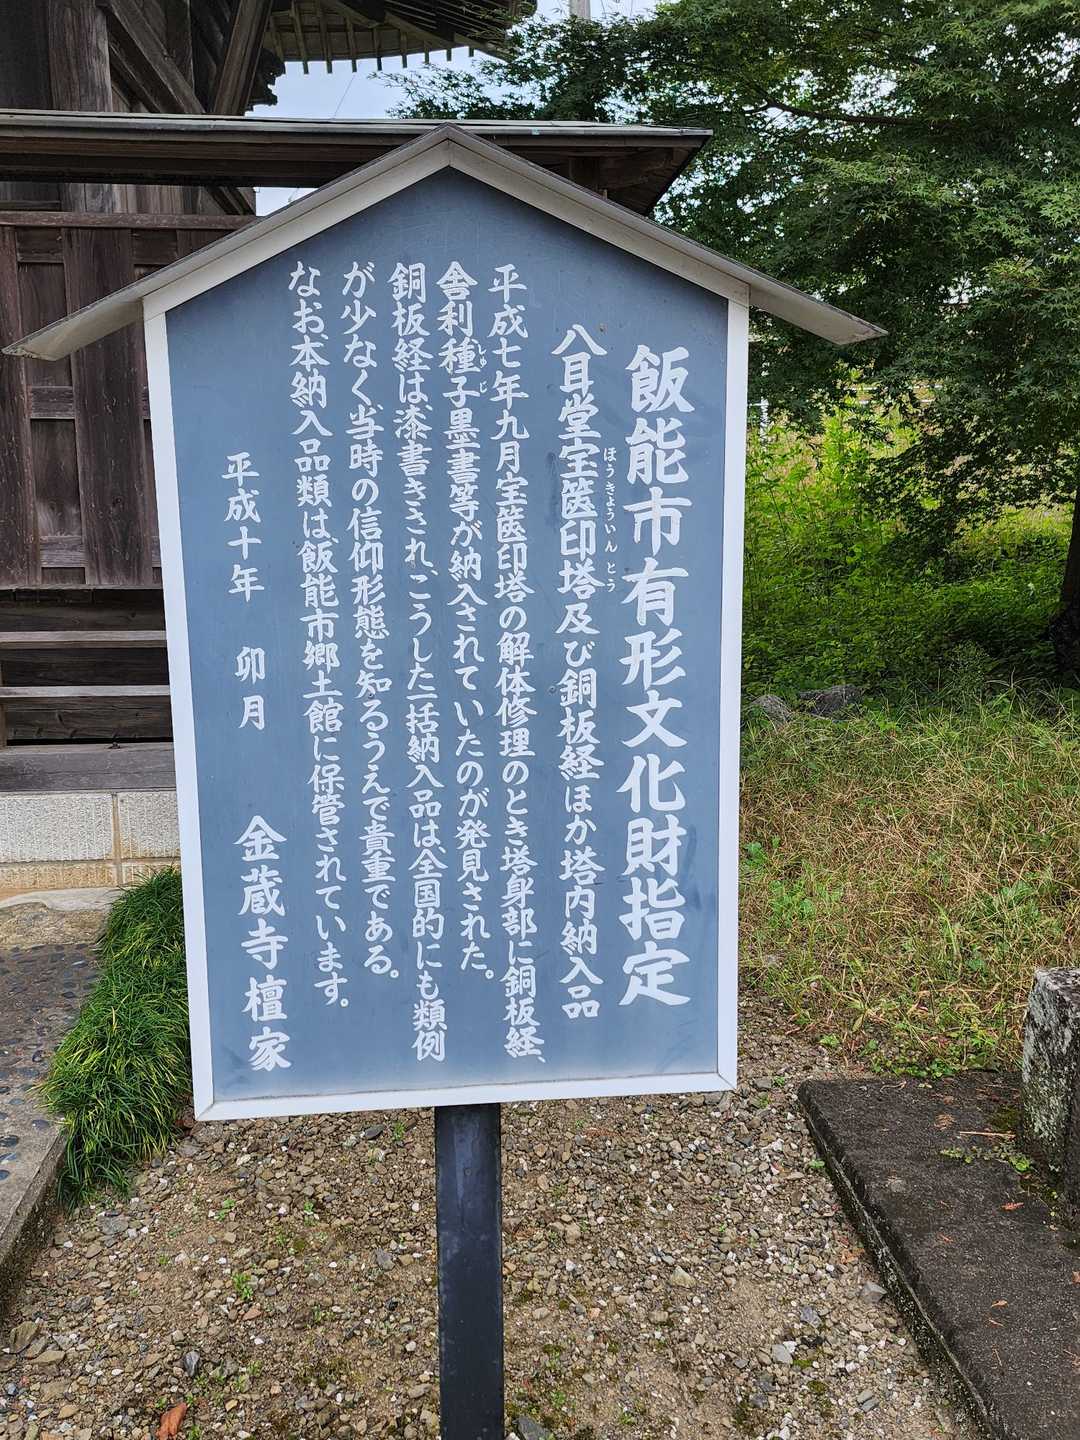 飯能市有形文化財指定
八耳堂宝篋印塔及び銅板経ほか塔内納入品
ほうきよういんとう
平成七年九月宝篋印塔の解体修理のとき塔身部に銅板経、
舎利種子黒書等が納入されていたのが発見された。
しゅじ
銅板経は漆書きされ、こうした一括納入品は、全国的にも類例
が少なく、当時の信仰形態を知るうえで貴重である。
なお、本納入品類は、飯能市郷土館に保管されています。
平成十年 卯月
金蔵寺檀家